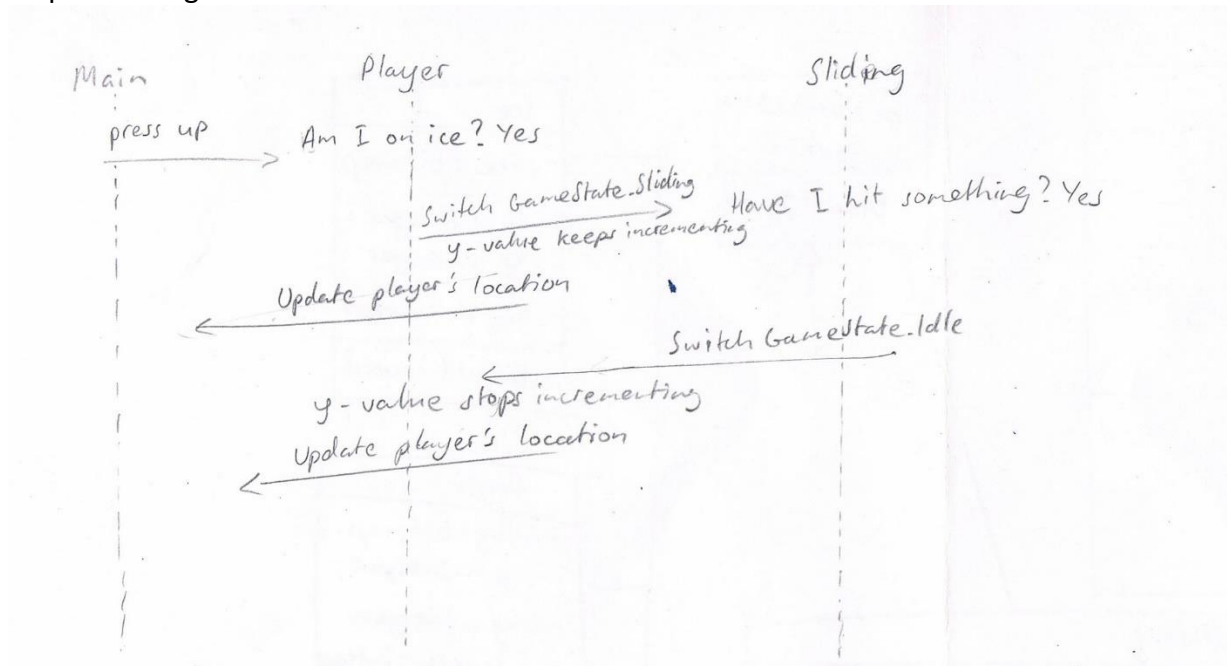 Main
Player
Sliding
press up
Am I on ice? Yes
Switch GameState.Sliding
Have I hit something? Yes
y-value keeps incrementing
Update player's location
Switch GameState.Idle
y-value stops incrementing
Update player's location